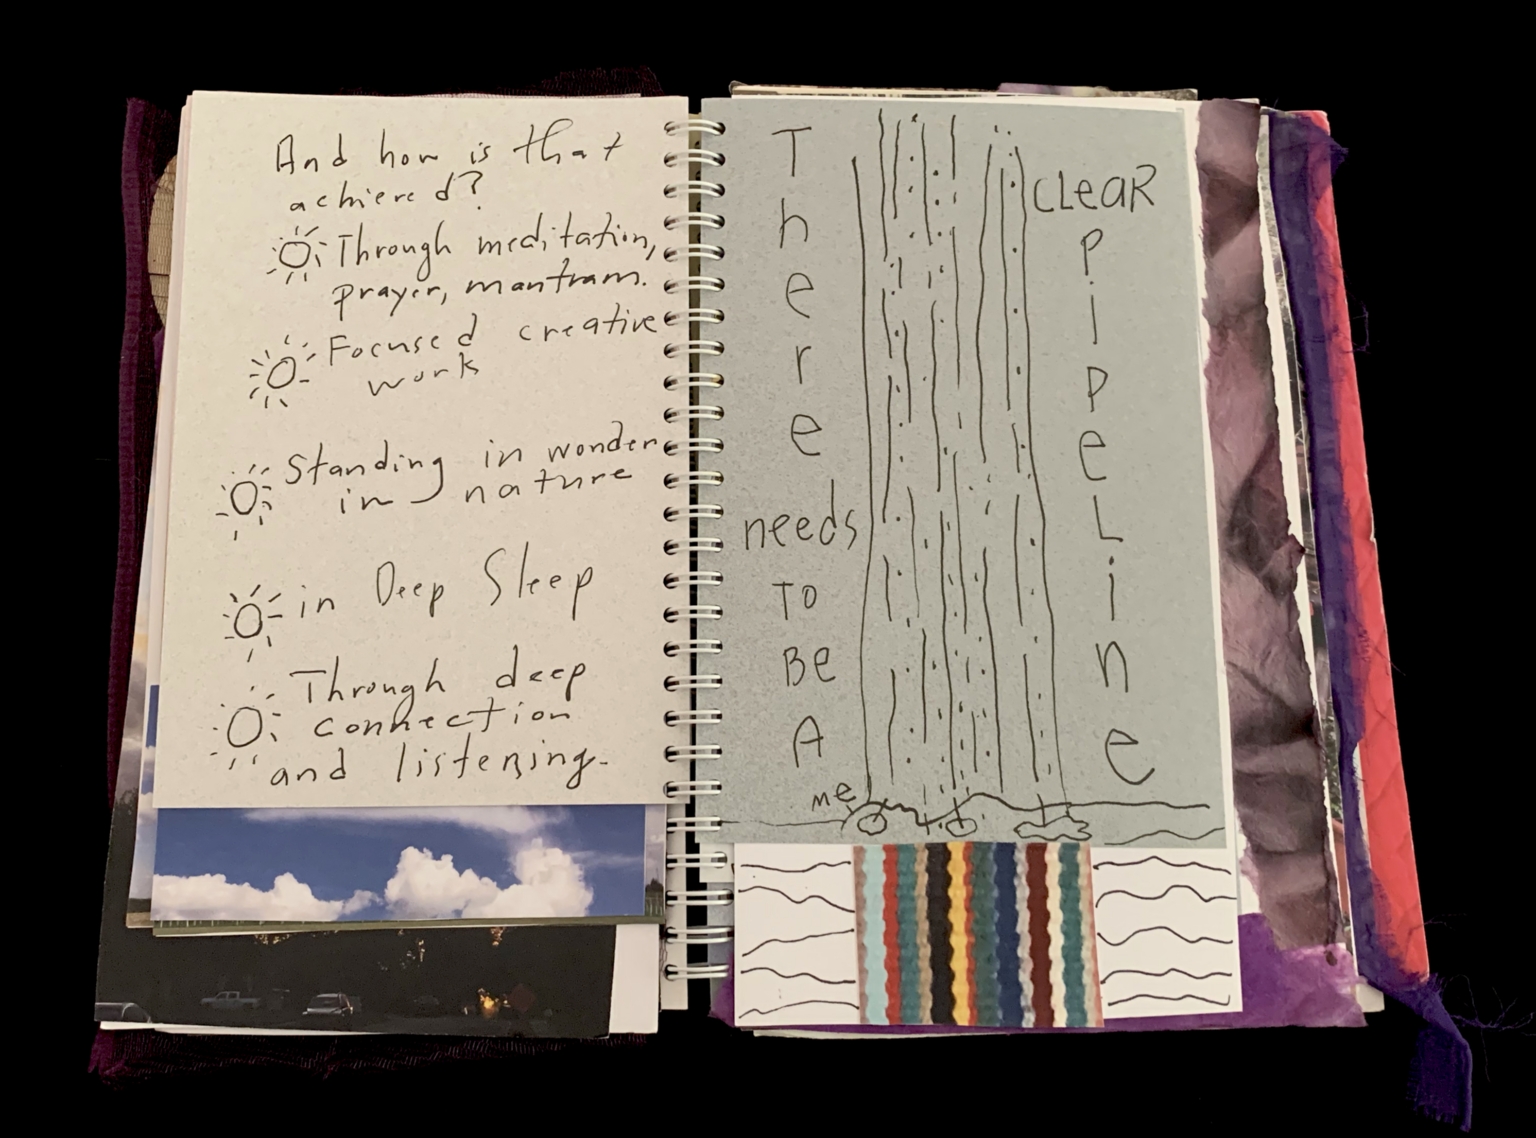 And how is that
achieved?
Through meditation,
prayer, mantram.
Focused creative
work
Standing in wonder
in nature
in Deep Sleep
Through deep
connection
and listening.
There
needs
TO
Be
A
CLeaR
PiPeLine
me